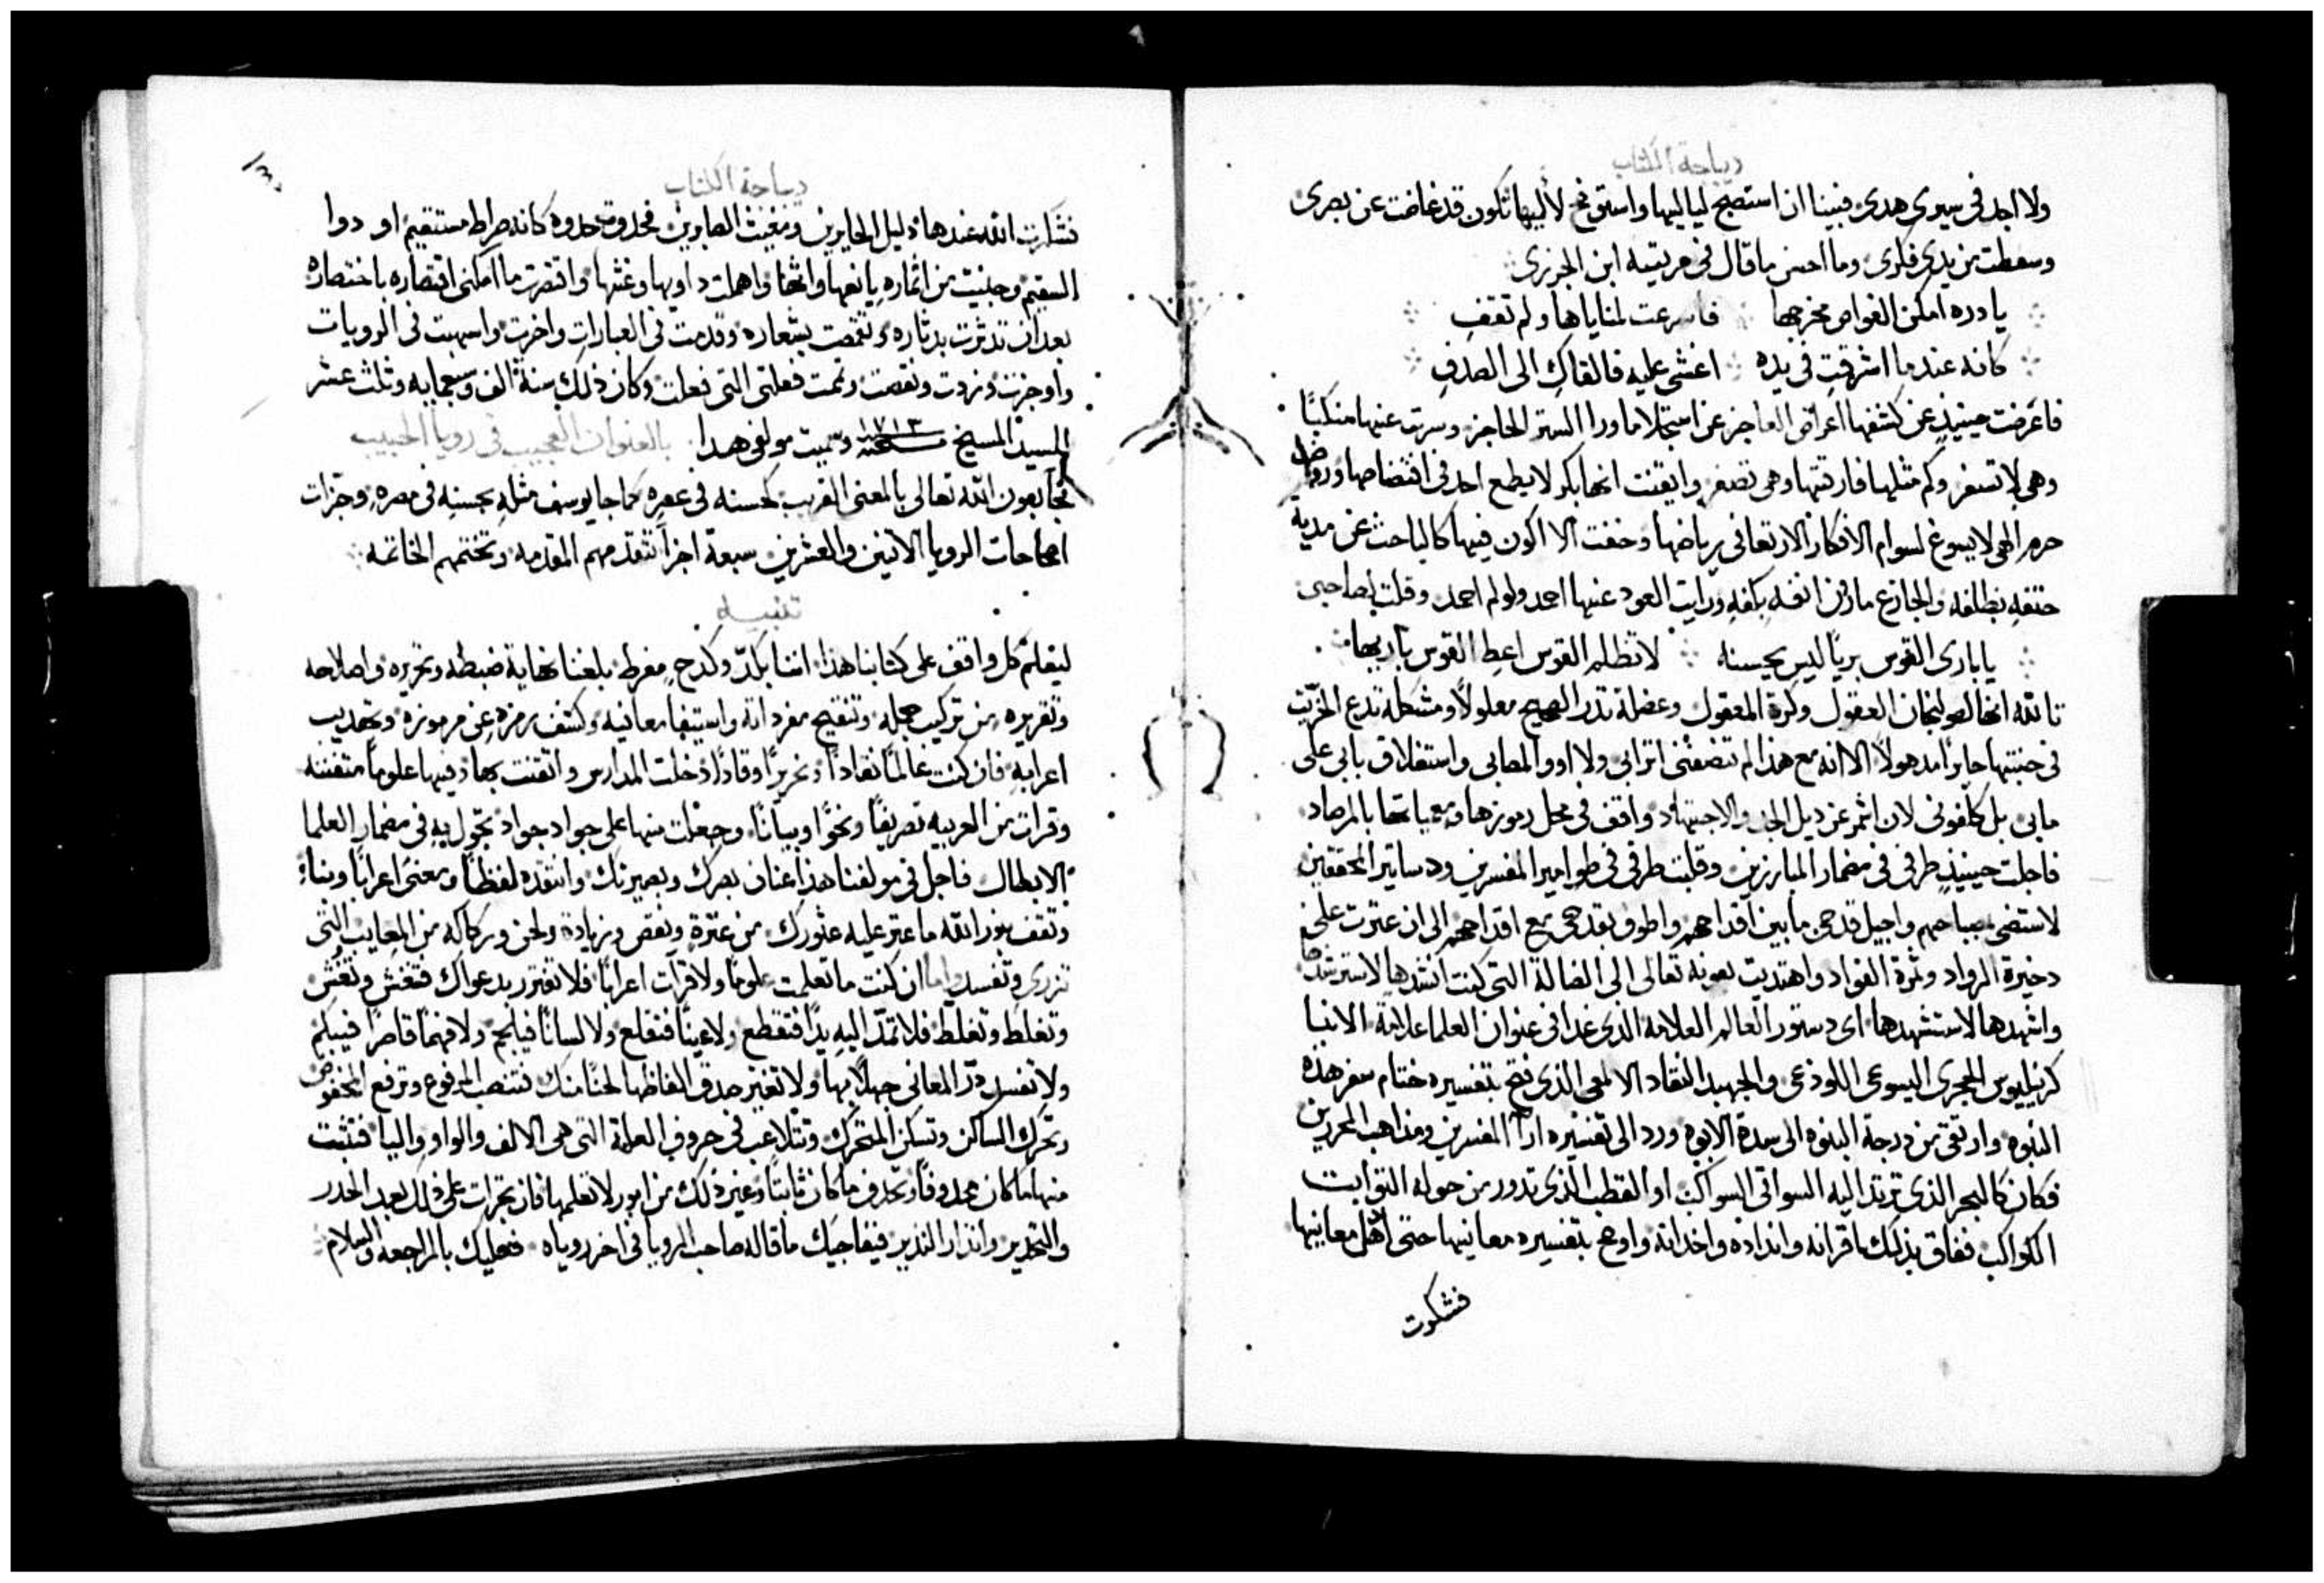 ديباجة الكتاب
ولا اجد في سيري هدى فبينا ان استصبح لياليها واستوضح لأليها تكون قد غاضت عن بصري
وسقطت من يدي فكري وما احسن ما قال في مرثيته ابن الجزري
يا دره امكن الغواص مخرجها فاسرعت لمناياها ولم تقف
كانه عندما اشرقت في يده اغشى عليه فالقاك الى الصدف
فاعرضت حينيذ عن كشفها اعراض العاجز عن استجلا ما ورا الستر الحاجز وسرت عنها منكبًا
وهي لا تسفر وكم مثلها فارقتها وهي تصفر وايقنت انها بكر لا يطمع احد في افتضاضها
حرم الهي لا يسوغ لسوام الافكار الارتعا في رياضها وخفت الا اكون فيها كالباحث عن مدية
حتفه بظلفه والجادع مارن انفه بكفه ورايت العود عنها احمد ولو لم احمد وقلت لصاحبي
يا باري القوس بريًا ليس يحسنه لا تظلم القوس اعط القوس باريها
تالله انها لصولجان العقول وكرة المعقول وعضلة تذر الصحيح معلولاً ومشكلة تدع الخريت
في جنبتها حايرًا مدهولاً الا انه مع هذا لم تنصفني اترابي ولا اوو المصابي واستغلاق بابي على
ما بي بل كلفوني لان اشمر عن ديل الجد والاجتهاد واقف في محل رموزها ومعمياتها بالمرصاد
فاجلت حينيذ طرفي في مضمار المبارزين وقلبت طرفي في طوامير المفسرين ودساتير المحققين
لاستضي بمصباحهم واجيل قدحي ما بين اقداحهم واطوف بقدحي مع اقداحهم الى ان عترت على
دخيرة الرواد وثمرة الفواد واهتديت بعونه تعالى الى الضالة التي كنت انشدها لاسترشدها
واشهدها لاستشهدها اي دستور العالم العلامه الذي غدا في عنوان العلما علامة الانبا
كرنيليوس الحجري اليسوعي اللوذعي والجهبد النقاد الالمعي الذي فتح بتفسيره ختام سفر هذه
النبوه وارتقى من درجة البنوه الى سدة الابوه ورد الى تفسيره ارآ المفسرين ومذاهب المحررين
فكان كالبحر الذي ترتد اليه السواقي السواكب او القطب الذي تدور من حوله الثوابت
الكواكب ففاق بذلك اقرانه وانداده واخدانه واوعى بتفسيره معانيها حتى اهل معانيها
فشكرت
ديباجة الكتاب
فشكرت الله عندها دليل الحايرين ومغيث الصابرين فحدوت حدوه كانه صراط مستقيم او دوا
السقيم وجنيت من اثماره يانعها واهملت داويها وغثها واقتصرت ما امكنني اقتصاره باختصاره
بعد ان تدثرت بدثاره وتقمصت بشعاره وقدمت في العبارات واخرت واسهبت في الرويات
واوجزت وزدت ونقصت وتمت فعلتي التي فعلت وكان ذلك سنة الف وسبعمايه وثلث عشر
للسيد المسيح سنة ١٧١٣ وسميت مولفي هدا بالعنوان العجيب في رويا الحبيب
فجآ بعون الله تعالى بالمعنى الغريب كحسنه في عصره كما جا يوسف مثله بحسنه في مصره وجزات
اصحاحات الرويا الاتنين والعشرين سبعة اجزآ تتقدمهم المقدمه وتختتمهم الخاتمه
تنبيه
ليعلم كل واقف على كتابنا هذا اننا بكدّ وكدح مفرط بلغنا نهاية ضبطه وتحريره واصلاحه
وتقريره من تركيب جمله وتنقيح مفرداته واستيفا معانيه وكشف رمزه عن مرموزه وتهديب
اعرابه فان كنت عالمًا نقادًا ونحريرًا وقادًا دخلت المدارس واتقنت بها وفيها علومًا متفننه
وقرات من العربيه تصريفًا ونحوًا وبيانًا وجعلت منها على جواد جواد تجول به في مضمار العلما
الابطال فاجل في مولفنا هذا عنان بصرك وبصيرتك وانتقده لفظًا ومعنى اعرابًا وبناء
وتقف بنور الله ما عتر عليه عثورك من عترة ونقص وزيادة ولحن وركاكه من المعايب التي
تزري وتفسد واما ان كنت ما تعلمت علومًا ولا قرات اعرابًا فلا تغتر بدعواك فتغش وتغش
وتغلط وتغلط فلا تمدّ اليه يدًا فتقطع ولا عينًا فتقلع ولا لسانًا فيلجم ولا فهمًا قاصرًا فيبلم
ولا تفسد درّ المعاني جهلاً بها ولا تغير صدق الفاظها لحنًا منك فتنصب المرفوع وترفع المخفوض
وتحرك الساكن وتسكن المتحرك وتتلاعب في حروف العلة التي هي الالف والواو واليا فتثبت
منها ما كان محدوفًا وتحدف ما كان ثابتًا وغير ذلك من امور لا تعلمها فان تجرات على ذلك بعد الحدر
والتحدير وانذار الندير فيفاجيك ما قاله صاحب الرويا في اخر روياه فعليك بالمراجعه والسلام